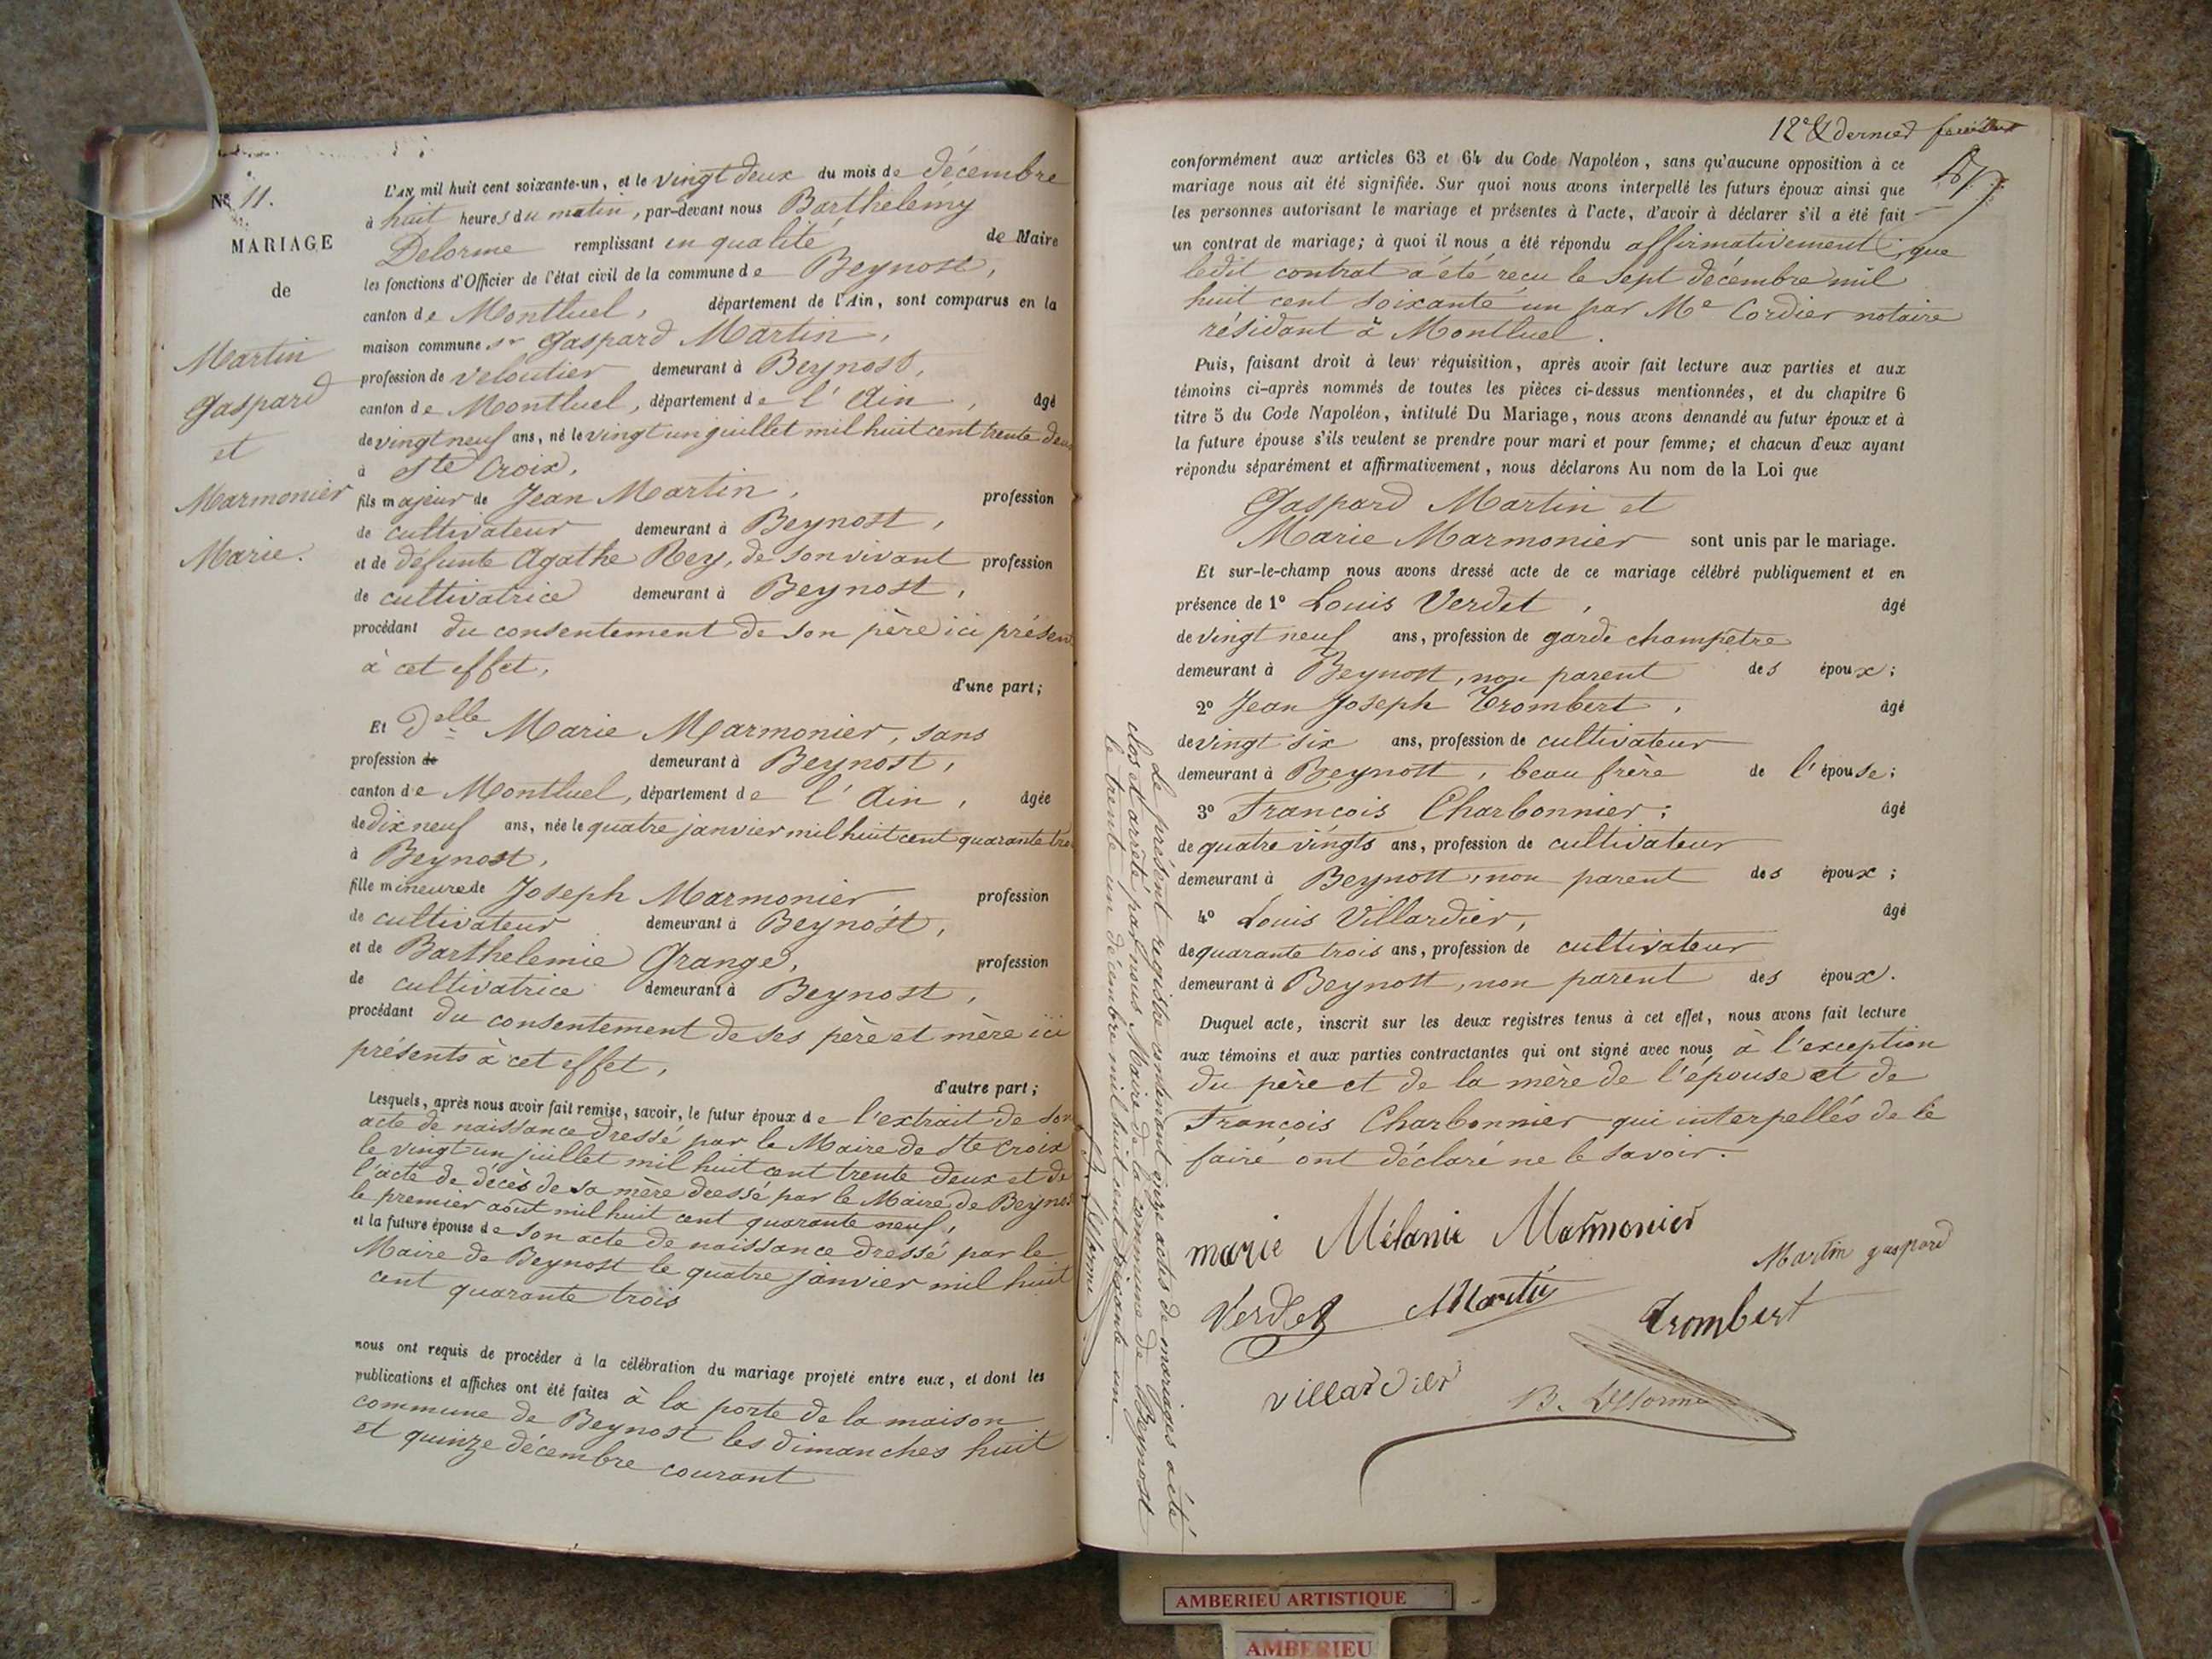 Nº 11.
MARIAGE
de
Martin
Gaspard
et
Marmonier
Marie.
L'AN mil huit cent soixante-un, et le vingt deux du mois de décembre
à huit heures du matin, par-devant nous Barthelémy
Delorme remplissant en qualité de Maire
les fonctions d'Officier de l'état civil de la commune de Beynost,
canton de Montluel, département de l'Ain, sont comparus en la
maison commune sr Gaspard Martin,
profession de veloutier demeurant à Beynost,
canton de Montluel, département de l'Ain, âgé
de vingt neuf ans, né le vingt un juillet mil huit cent trente deux
à Ste Croix,
fils majeur de Jean Martin, profession
de cultivateur demeurant à Beynost,
et de défunte Agathe Rey, de son vivant profession
de cultivatrice demeurant à Beynost,
procédant du consentement de son père ici présen
à cet effet,
d'une part;
Et Delle Marie Marmonier, sans
profession de demeurant à Beynost,
canton de Montluel, département de l'Ain, âgée
de dix neuf ans, née le quatre janvier mil huit cent quarante tro
à Beynost,
fille mineure de Joseph Marmonier, profession
de cultivateur demeurant à Beynost,
et de Barthelemie Grange, profession
de cultivatrice demeurant à Beynost,
procédant du consentement de ses père et mère ici
présents à cet effet,
d'autre part;
Lesquels, après nous avoir fait remise, savoir, le futur époux de l'extrait de son
acte de naissance dressé par le Maire de Ste Croix
le vingt un juillet mil huit cent trente deux et de
l'acte de décès de sa mère dressé par le Maire de Beynos
le premier août mil huit cent quarante neuf,
et la future épouse de son acte de naissance dressé par le
Maire de Beynost le quatre janvier mil huit
cent quarante trois
nous ont requis de procéder à la célébration du mariage projeté entre eux, et dont les
publications et affiches ont été faites à la porte de la maison
commune de Beynost les dimanches huit
et quinze décembre courant
12e & dernier
conformément aux articles 63 et 64 du Code Napoléon, sans qu'aucune opposition à ce
mariage nous ait été signifiée. Sur quoi nous avons interpellé les futurs époux ainsi que
les personnes autorisant le mariage et présentes à l'acte, d'avoir à déclarer s'il a été fait
un contrat de mariage; à quoi il nous a été répondu affirmativement, que
ledit contrat a été reçu le sept décembre mil
huit cent soixante un par Me Cordier notaire
résidant à Montluel.
Puis, faisant droit à leur réquisition, après avoir fait lecture aux parties et aux
témoins ci-après nommés de toutes les pièces ci-dessus mentionnées, et du chapitre 6
titre 5 du Code Napoléon, intitulé Du Mariage, nous avons demandé au futur époux et à
la future épouse s'ils veulent se prendre pour mari et pour femme; et chacun d'eux ayant
répondu séparément et affirmativement, nous déclarons Au nom de la Loi que
Gaspard Martin et
Marie Marmonier sont unis par le mariage.
Et sur-le-champ nous avons dressé acte de ce mariage célébré publiquement et en
présence de 1º Louis Verdet, âgé
de vingt neuf ans, profession de garde champêtre
demeurant à Beynost, non parent des époux;
2º Jean Joseph Trombert, âgé
de vingt six ans, profession de cultivateur
demeurant à Beynost, beau frère de l'épouse;
3º Francois Charbonnier; âgé
de quatre vingts ans, profession de cultivateur
demeurant à Beynost, non parent des époux;
4º Louis Villardier, âgé
de quarante trois ans, profession de cultivateur
demeurant à Beynost, non parent des époux.
Duquel acte, inscrit sur les deux registres tenus à cet effet, nous avons fait lecture
aux témoins et aux parties contractantes qui ont signé avec nous à l'exception
du père et de la mère de l'épouse et de
Francois Charbonnier qui interpellés de le
faire ont déclaré ne le savoir.
marie Mélanie Marmonier
Martin gaspard
Verdet Martin
Trombert
villardier B. Delorme
Le présent registre contenant onze actes de mariages a été
clos et arrêté par nous Maire de la commune de Beynost
le trente un décembre mil huit cent soixante un.
B. Delorme
AMBERIEU ARTISTIQUE
AMBERIEU